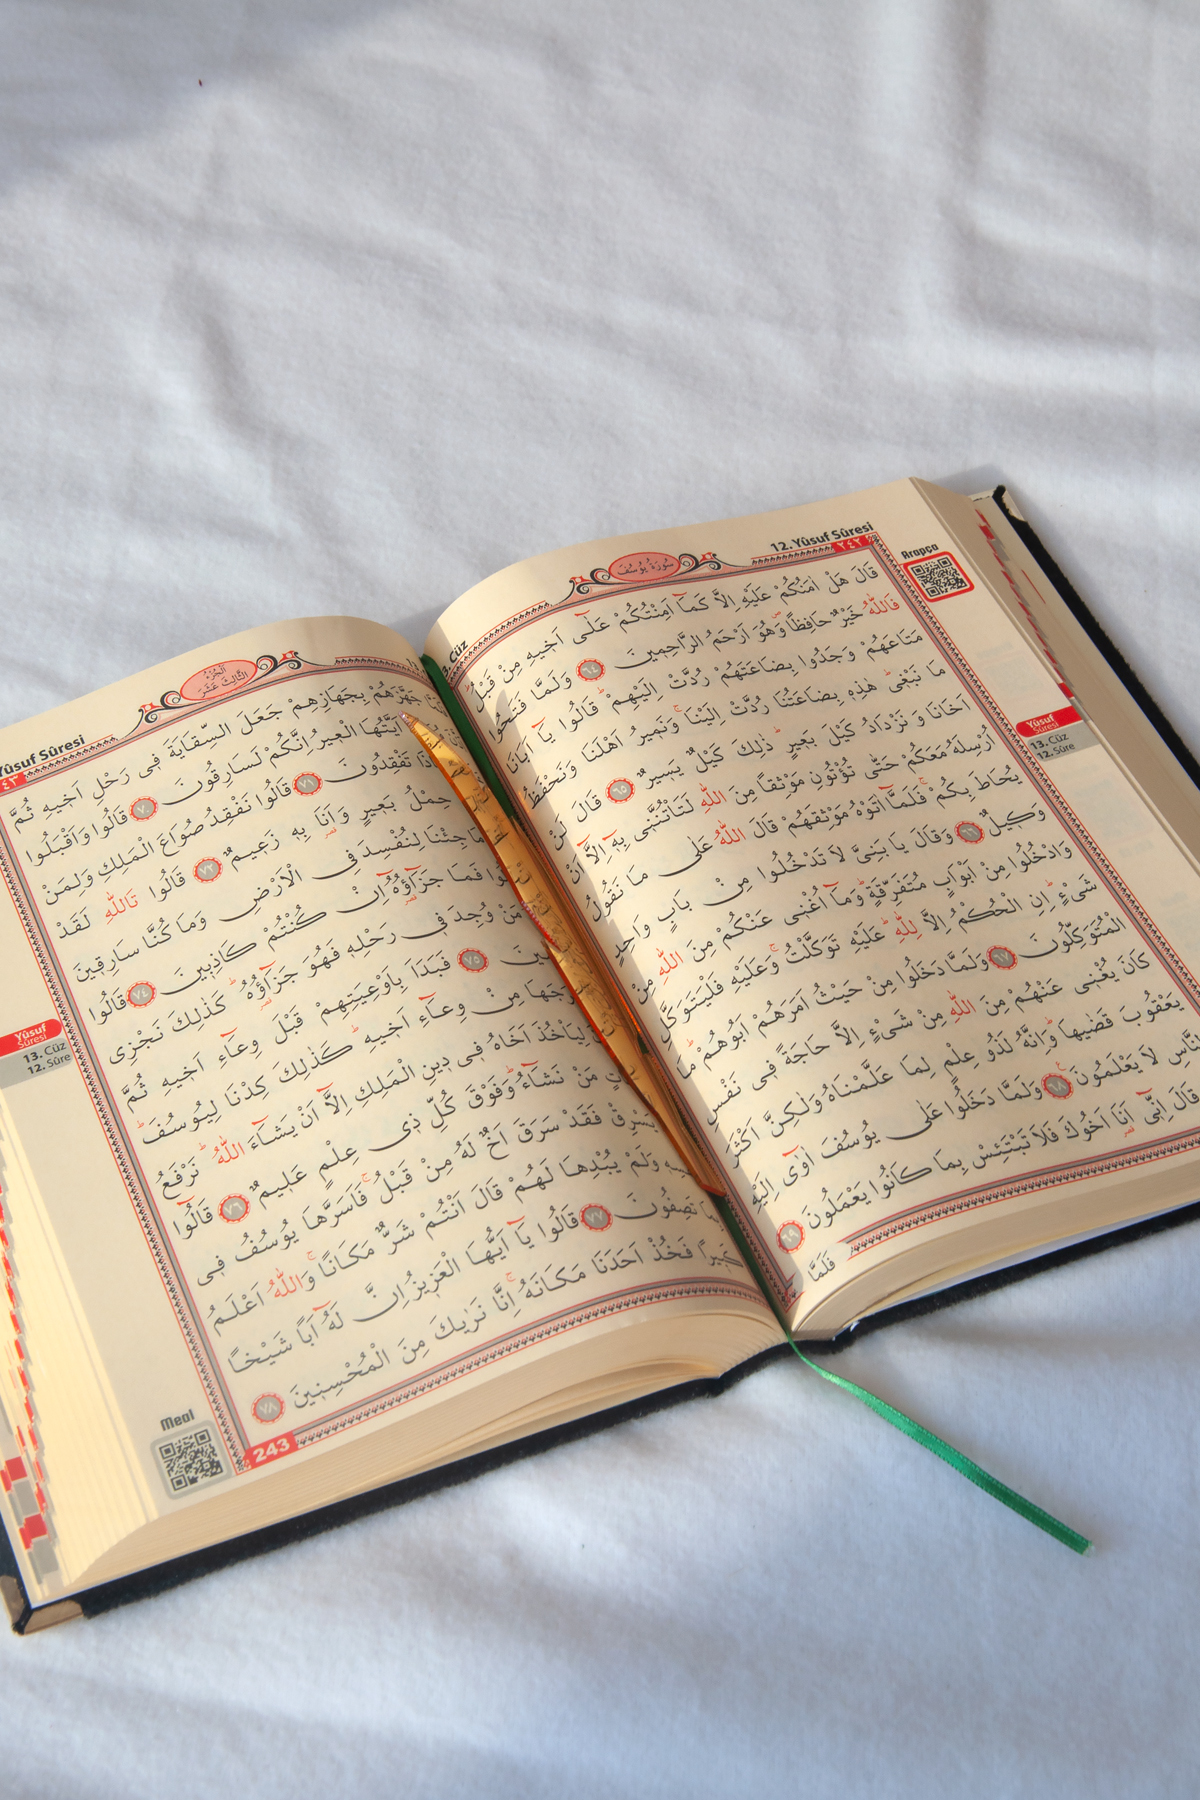 12. Yûsuf Sûresi
٢٤٢
سُورَةُ يُوسُفَ
Arapça
قَالَ هَلْ اٰمَنُكُمْ عَلَيْهِ اِلَّا كَمَٓا اَمِنْتُكُمْ عَلٰٓى اَخ۪يهِ مِنْ قَبْلُۜ
فَاللّٰهُ خَيْرٌ حَافِظاًۖ وَهُوَ اَرْحَمُ الرَّاحِم۪ينَ ﴿٦٤﴾ وَلَمَّا فَتَحُوا
مَتَاعَهُمْ وَجَدُوا بِضَاعَتَهُمْ رُدَّتْ اِلَيْهِمْۜ قَالُوا يَٓا اَبَانَا
مَا نَبْغ۪يۜ هٰذِه۪ بِضَاعَتُنَا رُدَّتْ اِلَيْنَاۚ وَنَم۪يرُ اَهْلَنَا وَنَحْفَظُ
اَخَانَا وَنَزْدَادُ كَيْلَ بَع۪يرٍۜ ذٰلِكَ كَيْلٌ يَس۪يرٌ ﴿٦٥﴾ قَالَ لَنْ
اُرْسِلَهُ مَعَكُمْ حَتّٰى تُؤْتُونِ مَوْثِقاً مِنَ اللّٰهِ لَتَأْتُنَّن۪ي بِه۪ٓ اِلَّٓا اَنْ
يُحَاطَ بِكُمْۚ فَلَمَّٓا اٰتَوْهُ مَوْثِقَهُمْ قَالَ اللّٰهُ عَلٰى مَا نَقُولُ
وَك۪يلٌ ﴿٦٦﴾ وَقَالَ يَا بَنِيَّ لَا تَدْخُلُوا مِنْ بَابٍ وَاحِدٍ
وَادْخُلُوا مِنْ اَبْوَابٍ مُتَفَرِّقَةٍۜ وَمَٓا اُغْن۪ي عَنْكُمْ مِنَ اللّٰهِ مِنْ
شَيْءٍۜ اِنِ الْحُكْمُ اِلَّا لِلّٰهِۜ عَلَيْهِ تَوَكَّلْتُۚ وَعَلَيْهِ فَلْيَتَوَكَّلِ
الْمُتَوَكِّلُونَ ﴿٦٧﴾ وَلَمَّا دَخَلُوا مِنْ حَيْثُ اَمَرَهُمْ اَبُوهُمْۜ مَا
كَانَ يُغْن۪ي عَنْهُمْ مِنَ اللّٰهِ مِنْ شَيْءٍ اِلَّا حَاجَةً ف۪ي نَفْسِ
يَعْقُوبَ قَضٰيهَاۜ وَاِنَّهُ لَذُو عِلْمٍ لِمَا عَلَّمْنَاهُ وَلٰكِنَّ اَكْثَرَ
النَّاسِ لَا يَعْلَمُونَ۟ ﴿٦٨﴾ وَلَمَّا دَخَلُوا عَلٰى يُوسُفَ اٰوٰٓى اِلَيْهِ
قَالَ اِنّ۪ٓي اَنَا اَخُوكَ فَلَا تَبْتَئِسْ بِمَا كَانُوا يَعْمَلُونَ ﴿٦٩﴾
فَلَمَّا
Yûsuf
Sûresi
13. Cüz
12. Sûre
Yûsuf Sûresi
اَلْجُزْءُ
الثَّالِثَ عَشَرَ
جَهَّزَهُمْ بِجَهَازِهِمْ جَعَلَ السِّقَايَةَ ف۪ي رَحْلِ اَخ۪يهِ ثُمَّ
اَيَّتُهَا الْع۪يرُ اِنَّكُمْ لَسَارِقُونَ ﴿٧٠﴾ قَالُوا وَاَقْبَلُوا
تَفْقِدُونَ ﴿٧١﴾ قَالُوا نَفْقِدُ صُوَاعَ الْمَلِكِ وَلِمَنْ
حِمْلُ بَع۪يرٍ وَاَنَا۬ بِه۪ زَع۪يمٌ ﴿٧٢﴾ قَالُوا تَاللّٰهِ لَقَدْ
جِئْنَا لِنُفْسِدَ فِي الْاَرْضِ وَمَا كُنَّا سَارِق۪ينَ
فَمَا جَزَٓاؤُ۬هُٓ اِنْ كُنْتُمْ كَاذِب۪ينَ ﴿٧٤﴾ قَالُوا
مَنْ وُجِدَ ف۪ي رَحْلِه۪ فَهُوَ جَزَٓاؤُ۬هُۜ كَذٰلِكَ نَجْزِي
﴿٧٥﴾ فَبَدَاَ بِاَوْعِيَتِهِمْ قَبْلَ وِعَٓاءِ اَخ۪يهِ ثُمَّ
مِنْ وِعَٓاءِ اَخ۪يهِۜ كَذٰلِكَ كِدْنَا لِيُوسُفَۜ
لِيَأْخُذَ اَخَاهُ ف۪ي د۪ينِ الْمَلِكِ اِلَّٓا اَنْ يَشَٓاءَ اللّٰهُۜ نَرْفَعُ
مَنْ نَشَٓاءُۜ وَفَوْقَ كُلِّ ذ۪ي عِلْمٍ عَل۪يمٌ ﴿٧٦﴾ قَالُٓوا
يَسْرِقْ فَقَدْ سَرَقَ اَخٌ لَهُ مِنْ قَبْلُۚ فَاَسَرَّهَا يُوسُفُ ف۪ي
وَلَمْ يُبْدِهَا لَهُمْۚ قَالَ اَنْتُمْ شَرٌّ مَكَاناًۚ وَاللّٰهُ اَعْلَمُ
تَصِفُونَ ﴿٧٧﴾ قَالُوا يَٓا اَيُّهَا الْعَز۪يزُ اِنَّ لَهُٓ اَباً شَيْخاً
كَب۪يراً فَخُذْ اَحَدَنَا مَكَانَهُۚ اِنَّا نَرٰيكَ مِنَ الْمُحْسِن۪ينَ ﴿٧٨﴾
Yûsuf
Sûresi
13. Cüz
12. Sûre
Meal
243